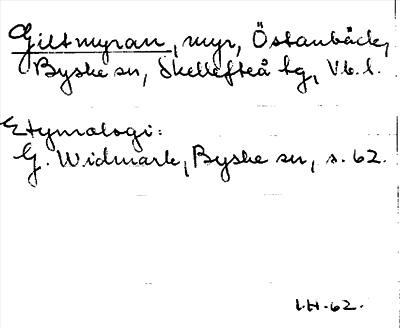 Giltmyran, myr, Östanbäck,
Byske sn, Skellefteå tg, Vb. l.
Etymologi:
G. Widmark, Byske sn, s. 62.
I.H-62.